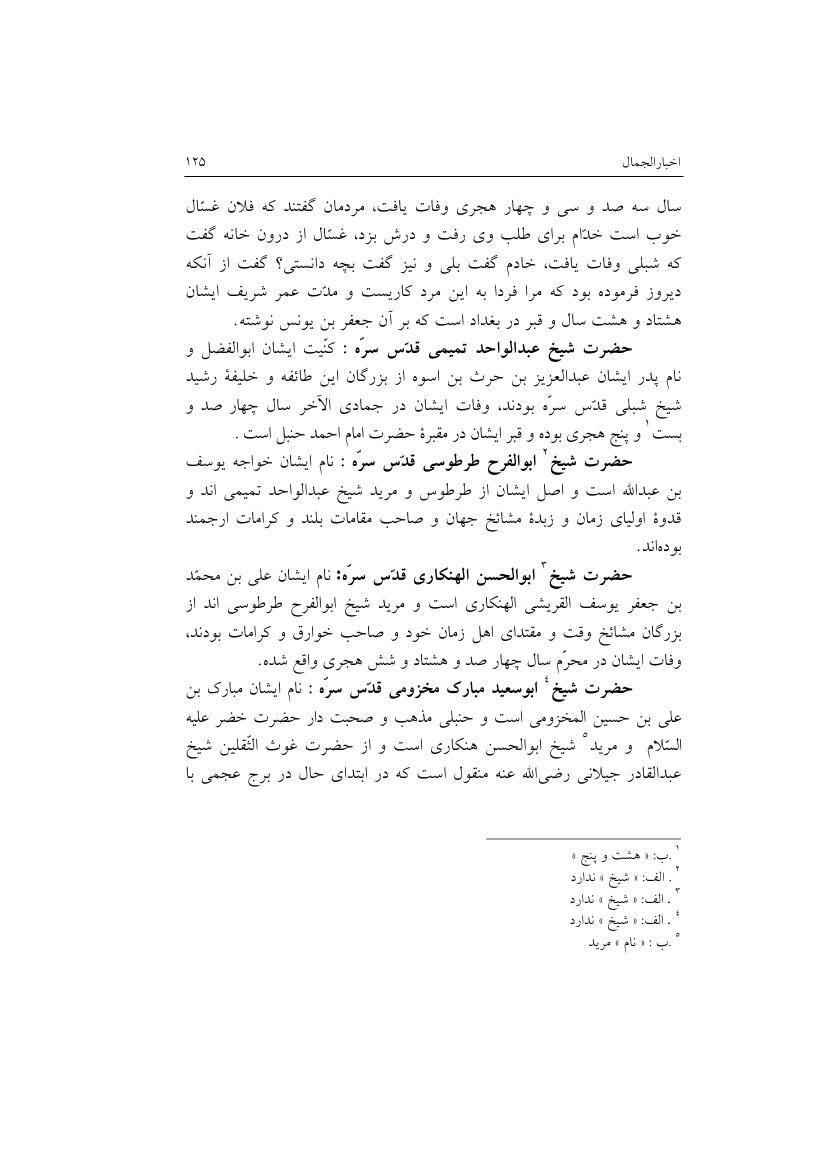 اخبارالجمال ۱۲۵
سال سه صد و سی و چهار هجری وفات یافت، مردمان گفتند که فلان غسّال
خوب است خدّام برای طلب وی رفت و درش بزد، غسّال از درون خانه گفت
که شبلی وفات یافت، خادم گفت بلی و نیز گفت بچه دانستی؟ گفت از آنکه
دیروز فرموده بود که مرا فردا به این مرد کاریست و مدّت عمر شریف ایشان
هشتاد و هشت سال و قبر در بغداد است که بر آن جعفر بن یونس نوشته.
حضرت شیخ عبدالواحد تمیمی قدّس سرّه : کنّیت ایشان ابوالفضل و
نام پدر ایشان عبدالعزیز بن حرث بن اسوه از بزرگان این طائفه و خلیفۀ رشید
شیخ شبلی قدّس سرّه بودند، وفات ایشان در جمادی الآخر سال چهار صد و
بست۱ و پنج هجری بوده و قبر ایشان در مقبرۀ حضرت امام احمد حنبل است .
حضرت شیخ۲ ابوالفرح طرطوسی قدّس سرّه : نام ایشان خواجه یوسف
بن عبدالله است و اصل ایشان از طرطوس و مرید شیخ عبدالواحد تمیمی اند و
قدوۀ اولیای زمان و زبدۀ مشائخ جهان و صاحب مقامات بلند و کرامات ارجمند
بوده‌اند.
حضرت شیخ۳ ابوالحسن الهنکاری قدّس سرّه: نام ایشان علی بن محمّد
بن جعفر یوسف القریشی الهنکاری است و مرید شیخ ابوالفرح طرطوسی اند از
بزرگان مشائخ وقت و مقتدای اهل زمان خود و صاحب خوارق و کرامات بودند،
وفات ایشان در محرّم سال چهار صد و هشتاد و شش هجری واقع شده.
حضرت شیخ٤ ابوسعید مبارک مخزومی قدّس سرّه : نام ایشان مبارک بن
علی بن حسین المخزومی است و حنبلی مذهب و صحبت دار حضرت خضر علیه
السّلام و مرید۵ شیخ ابوالحسن هنکاری است و از حضرت غوث الثّقلین شیخ
عبدالقادر جیلانی رضی‌الله عنه منقول است که در ابتدای حال در برج عجمی با
۱ .ب: « هشت و پنج »
۲ . الف: « شیخ » ندارد
۳ . الف: « شیخ » ندارد
٤ . الف: « شیخ » ندارد
۵ .ب : « نام » مرید